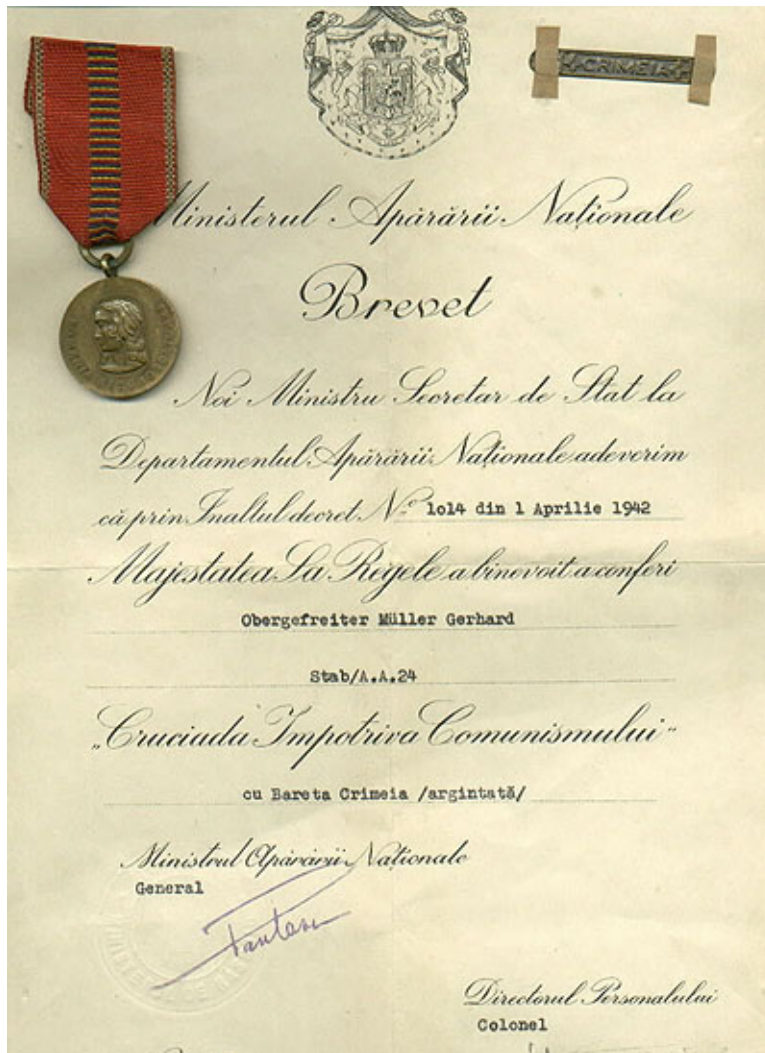 CRIMEIA
Ministerul Apărării Naționale
Brevet
Noi Ministru Secretar de Stat la
Departamentul Apărării Naționale adeverim
că prin Inaltul decret No lol4 din l Aprilie 1942
Majestatea Sa Regele a binevoit a conferi
Obergefreiter Müller Gerhard
Stab/A.A.24
„Cruciada Impotriva Comunismului"
cu Bareta Crimeia /argintată/
Ministrul Apărării Naționale
General
Directorul Personalului
Colonel